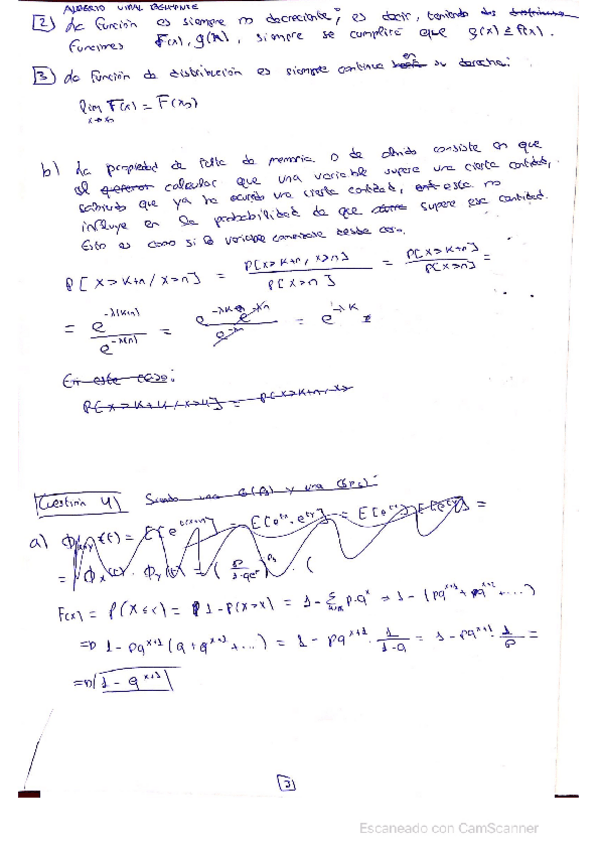 [2] La función es siempre no decreciente, es decir, teniendo dos
funciones F(x), g(x), siempre se cumplirá que g(x) ≥ F(x).
[3] La función de distribución es siempre continua en su derecha:
lim F(x) = F(x₀)
x→x₀
b) La propiedad de falta de memoria o de olvido consiste en que
al calcular que una variable supere una cierta cantidad,
sabiendo que ya ha ocurrido una cierta cantidad, esta no
influye en la probabilidad de que supere esa cantidad.
Esto es como si la variable comenzase desde cero.
P[X>K+n/X>n] = P[X>K+n, X>n] / P[X>n] = P[X>K+n] / P[X>n] =
= e^-λ(K+n) / e^-λ(n) = e^-λK e^-λn / e^-λn = e^-λK
En este caso:
Cuestión 4)
a) Φx+y(t) = E[e^t(x+y)] = E[e^tx · e^ty] = E[e^tx] E[e^ty] =
= Φx(t) · Φy(t) = (
F(x) = P(X≤x) = 1-P(X>x) = 1 - Σ p·q^x = 1 - (pq^x+1 + pq^x+2 + ...)
1 - pq^x+1 (q + q^x+1 + ...) = 1 - pq^x+1 · 1/1-q = 1 - pq^x+1 · 1/p =
1 - q^x+1
Escaneado con CamScanner